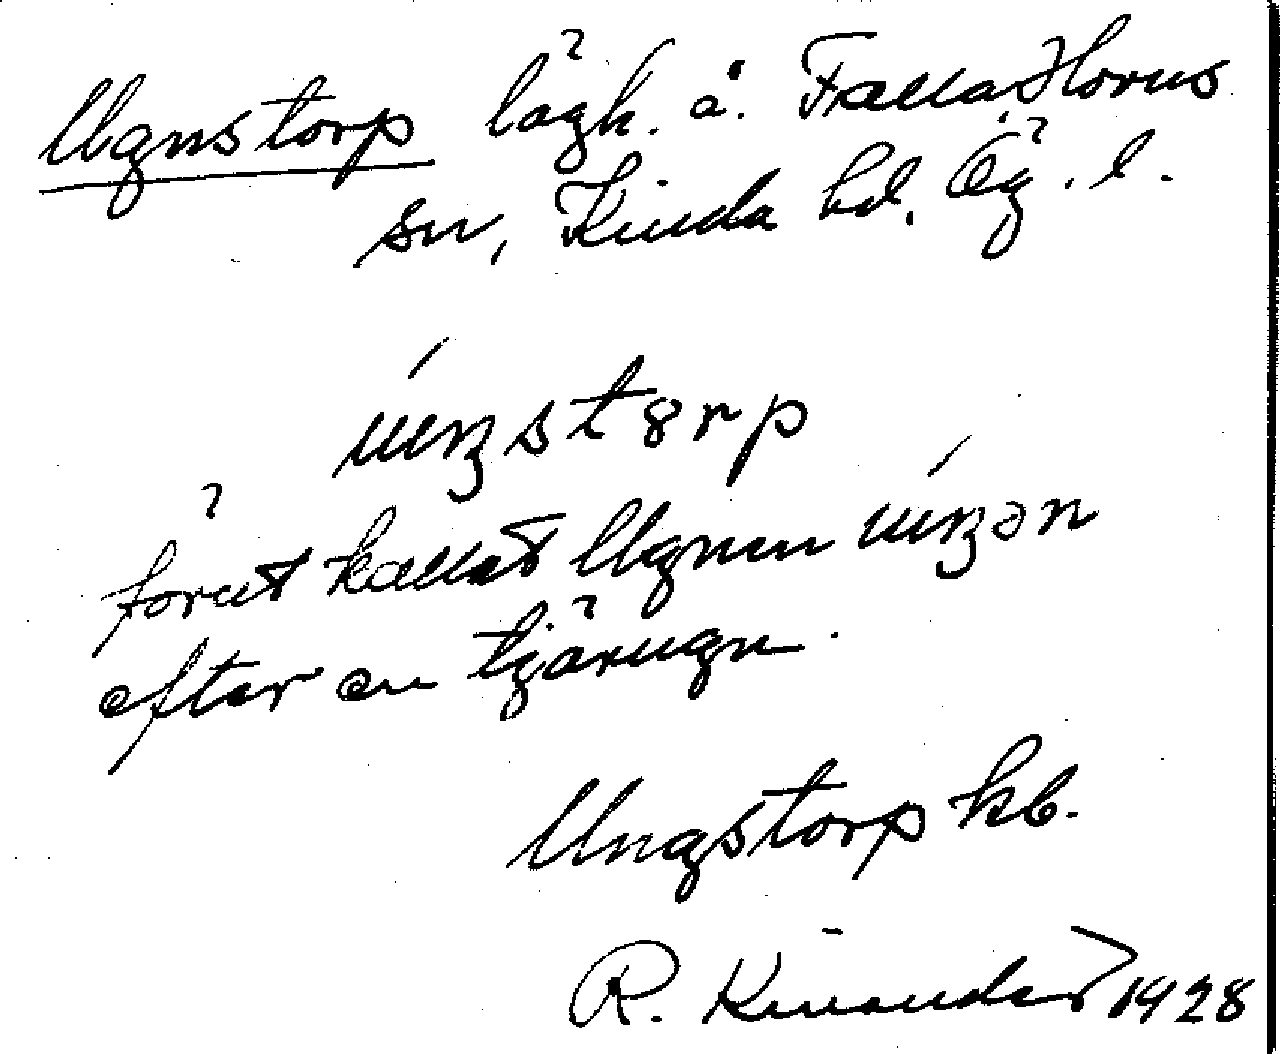 Ugnstorp lägh. å. Fälla, Horns
sn, Kinda hd. Ög. l.
úŋstɵrp
förut kallat Ugnen úŋən
efter en tjärugn.
Ungstorp kb.
R. Kinander 1928